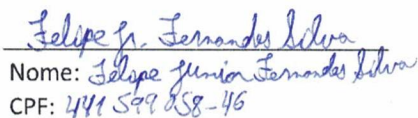 Felipe Jr. Fernandes Silva
Nome: Felipe Junior Fernandes Silva
CPF: 441 599 058-46